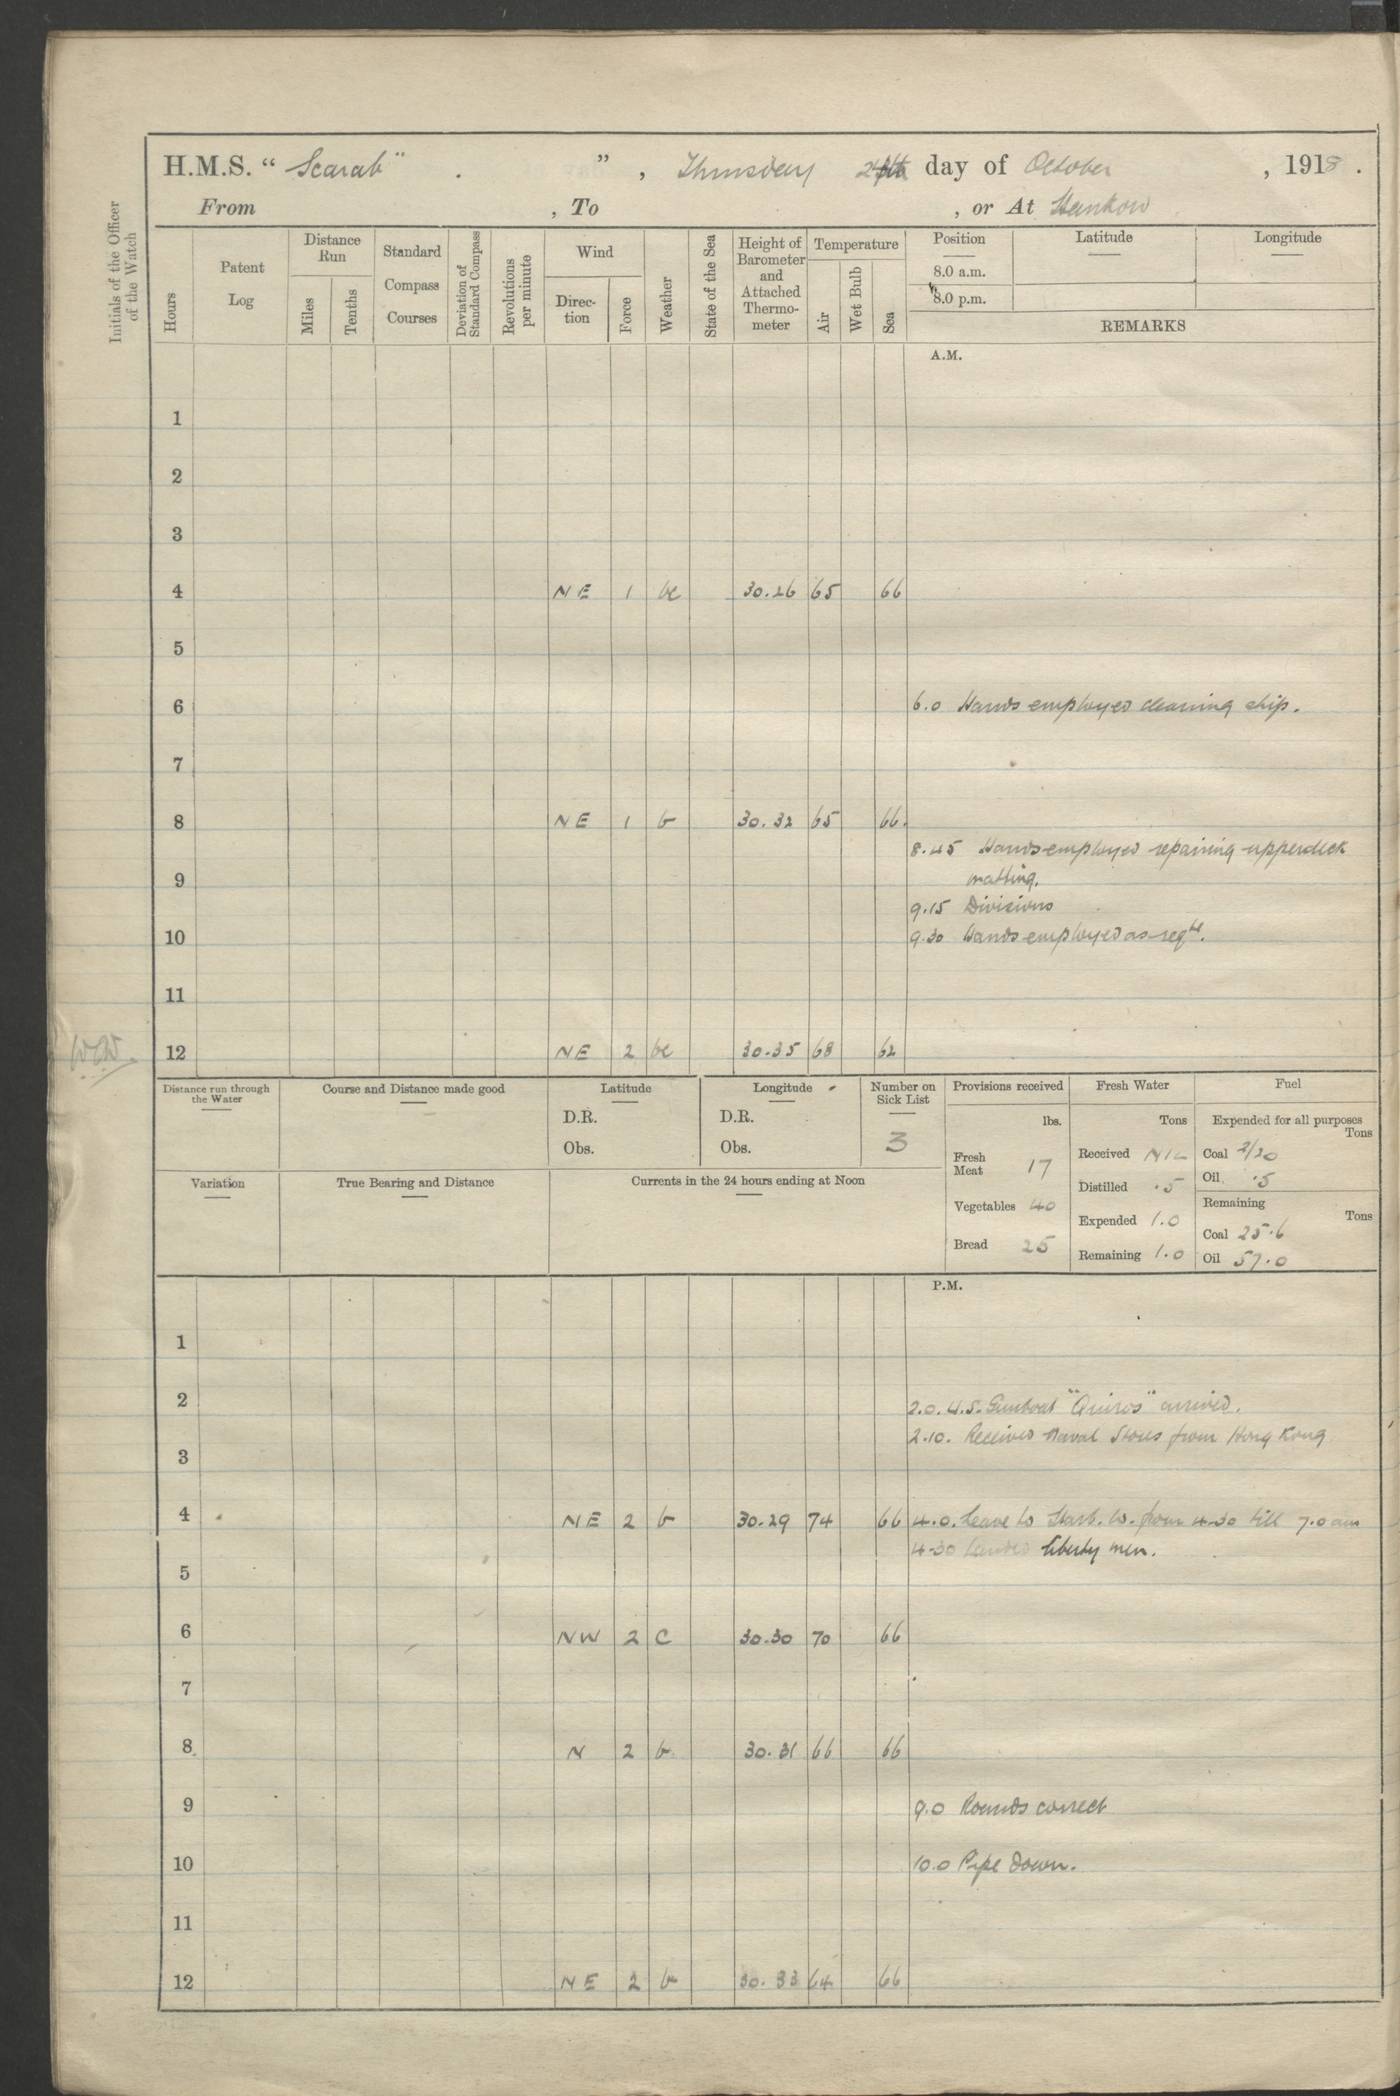 H.M.S. “ Scarab” ” , Thursday 24th day of October , 1918 .
From , To , or At Hankow
Initials of the Officer of the Watch
Hours
Patent Log
Distance Run
Miles
Tenths
Standard Compass Courses
Deviation of Standard Compass
Revolutions per minute
Wind
Direc-tion
Force
Weather
State of the Sea
Height of Barometer and Attached Thermo-meter
Temperature
Air
Wet Bulb
Sea
Position Latitude Longitude
8.0 a.m.
8.0 p.m.
REMARKS
A.M.
1
2
3
4 NE 1 bc 30.26 65 66
5
6 6.0 Hands employed cleaning ship.
7
8 NE 1 b 30.32 65 66.
8.45 Hands employed repairing upperdeck
9 matting.
9.15 Divisions
10 9.30 Hands employed as reqd.
11
12 NE 2 bc 30.35 68 62
Distance run through the Water
Course and Distance made good
Latitude
D.R.
Obs.
Longitude
D.R.
Obs.
Number on Sick List
3
Provisions received
lbs.
Fresh Meat 17
Vegetables 40
Bread 25
Fresh Water
Tons
Received NIL
Distilled .5
Expended 1.0
Remaining 1.0
Fuel
Expended for all purposes
Tons
Coal 2/20
Oil .5
Remaining
Tons
Coal 25.6
Oil 57.0
Variation
True Bearing and Distance
Currents in the 24 hours ending at Noon
P.M.
1
2 2.0. U.S. Gunboat "Quiros" arrived.
2.10. Received Naval Stores from Hong Kong
3
4 NE 2 b 30.29 74 66 4.0. Leave to Starb. W. from 4.30 till 7.0 am
4.30 Landed liberty men.
5
6 NW 2 C 30.30 70 66
7
8 N 2 b 30.31 66 66
9 9.0 Rounds correct
10 10.0 Pipe down.
11
12 NE 2 b 30.33 64 66